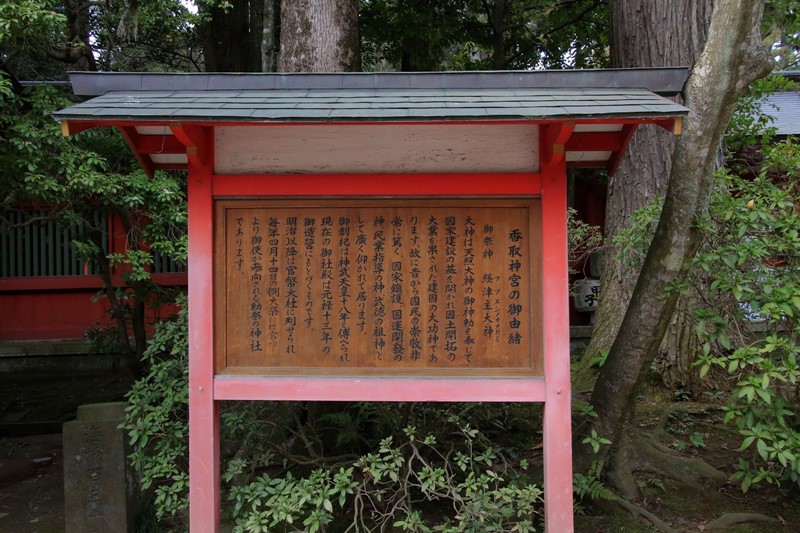 香取神宮の御由緒
フツヌシノオオカミ
御祭神 経津主大神
大神は天照大神の御神勅を奉じて
国家建設の基を開かれ国土開拓の
大業を果された建国の大功神であ
ります。故に昔から国民の崇敬非
常に篤く、国家鎮護、国運開発の
神、民業指導の神、武徳の祖神と
して広く仰がれて居ります。
御創祀は神武天皇十八年と伝へられ
現在の御社殿は元禄十三年の
御造営にかかるものです。
明治以降は官幣大社に列せられ
毎年四月十四日の例大祭には宮中
より御使が参向される勅祭の神社
であります。